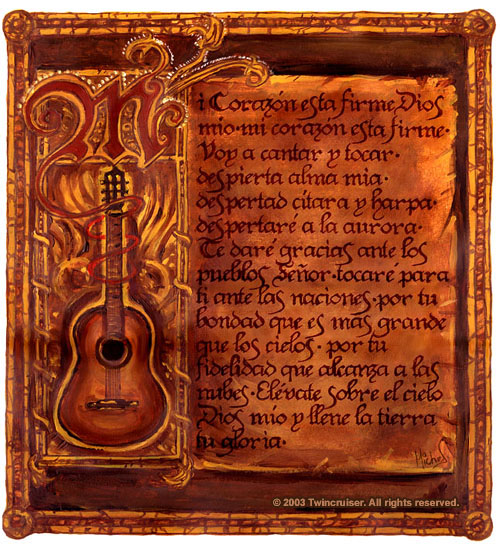 Mi Corazón esta firme, Dios
mio · mi corazón esta firme ·
Voy a cantar y tocar ·
despierta alma mia ·
despertad citara y harpa ·
despertaré a la aurora ·
Te daré gracias ante los
pueblos Señor · tocaré para
ti ante las naciones · por tu
bondad que es mas grande
que los cielos · por tu
fidelidad que alcanza a las
nubes · Elévate sobre el cielo
Dios mio y llene la tierra
tu gloria ·
© 2003 Twincruiser. All rights reserved.